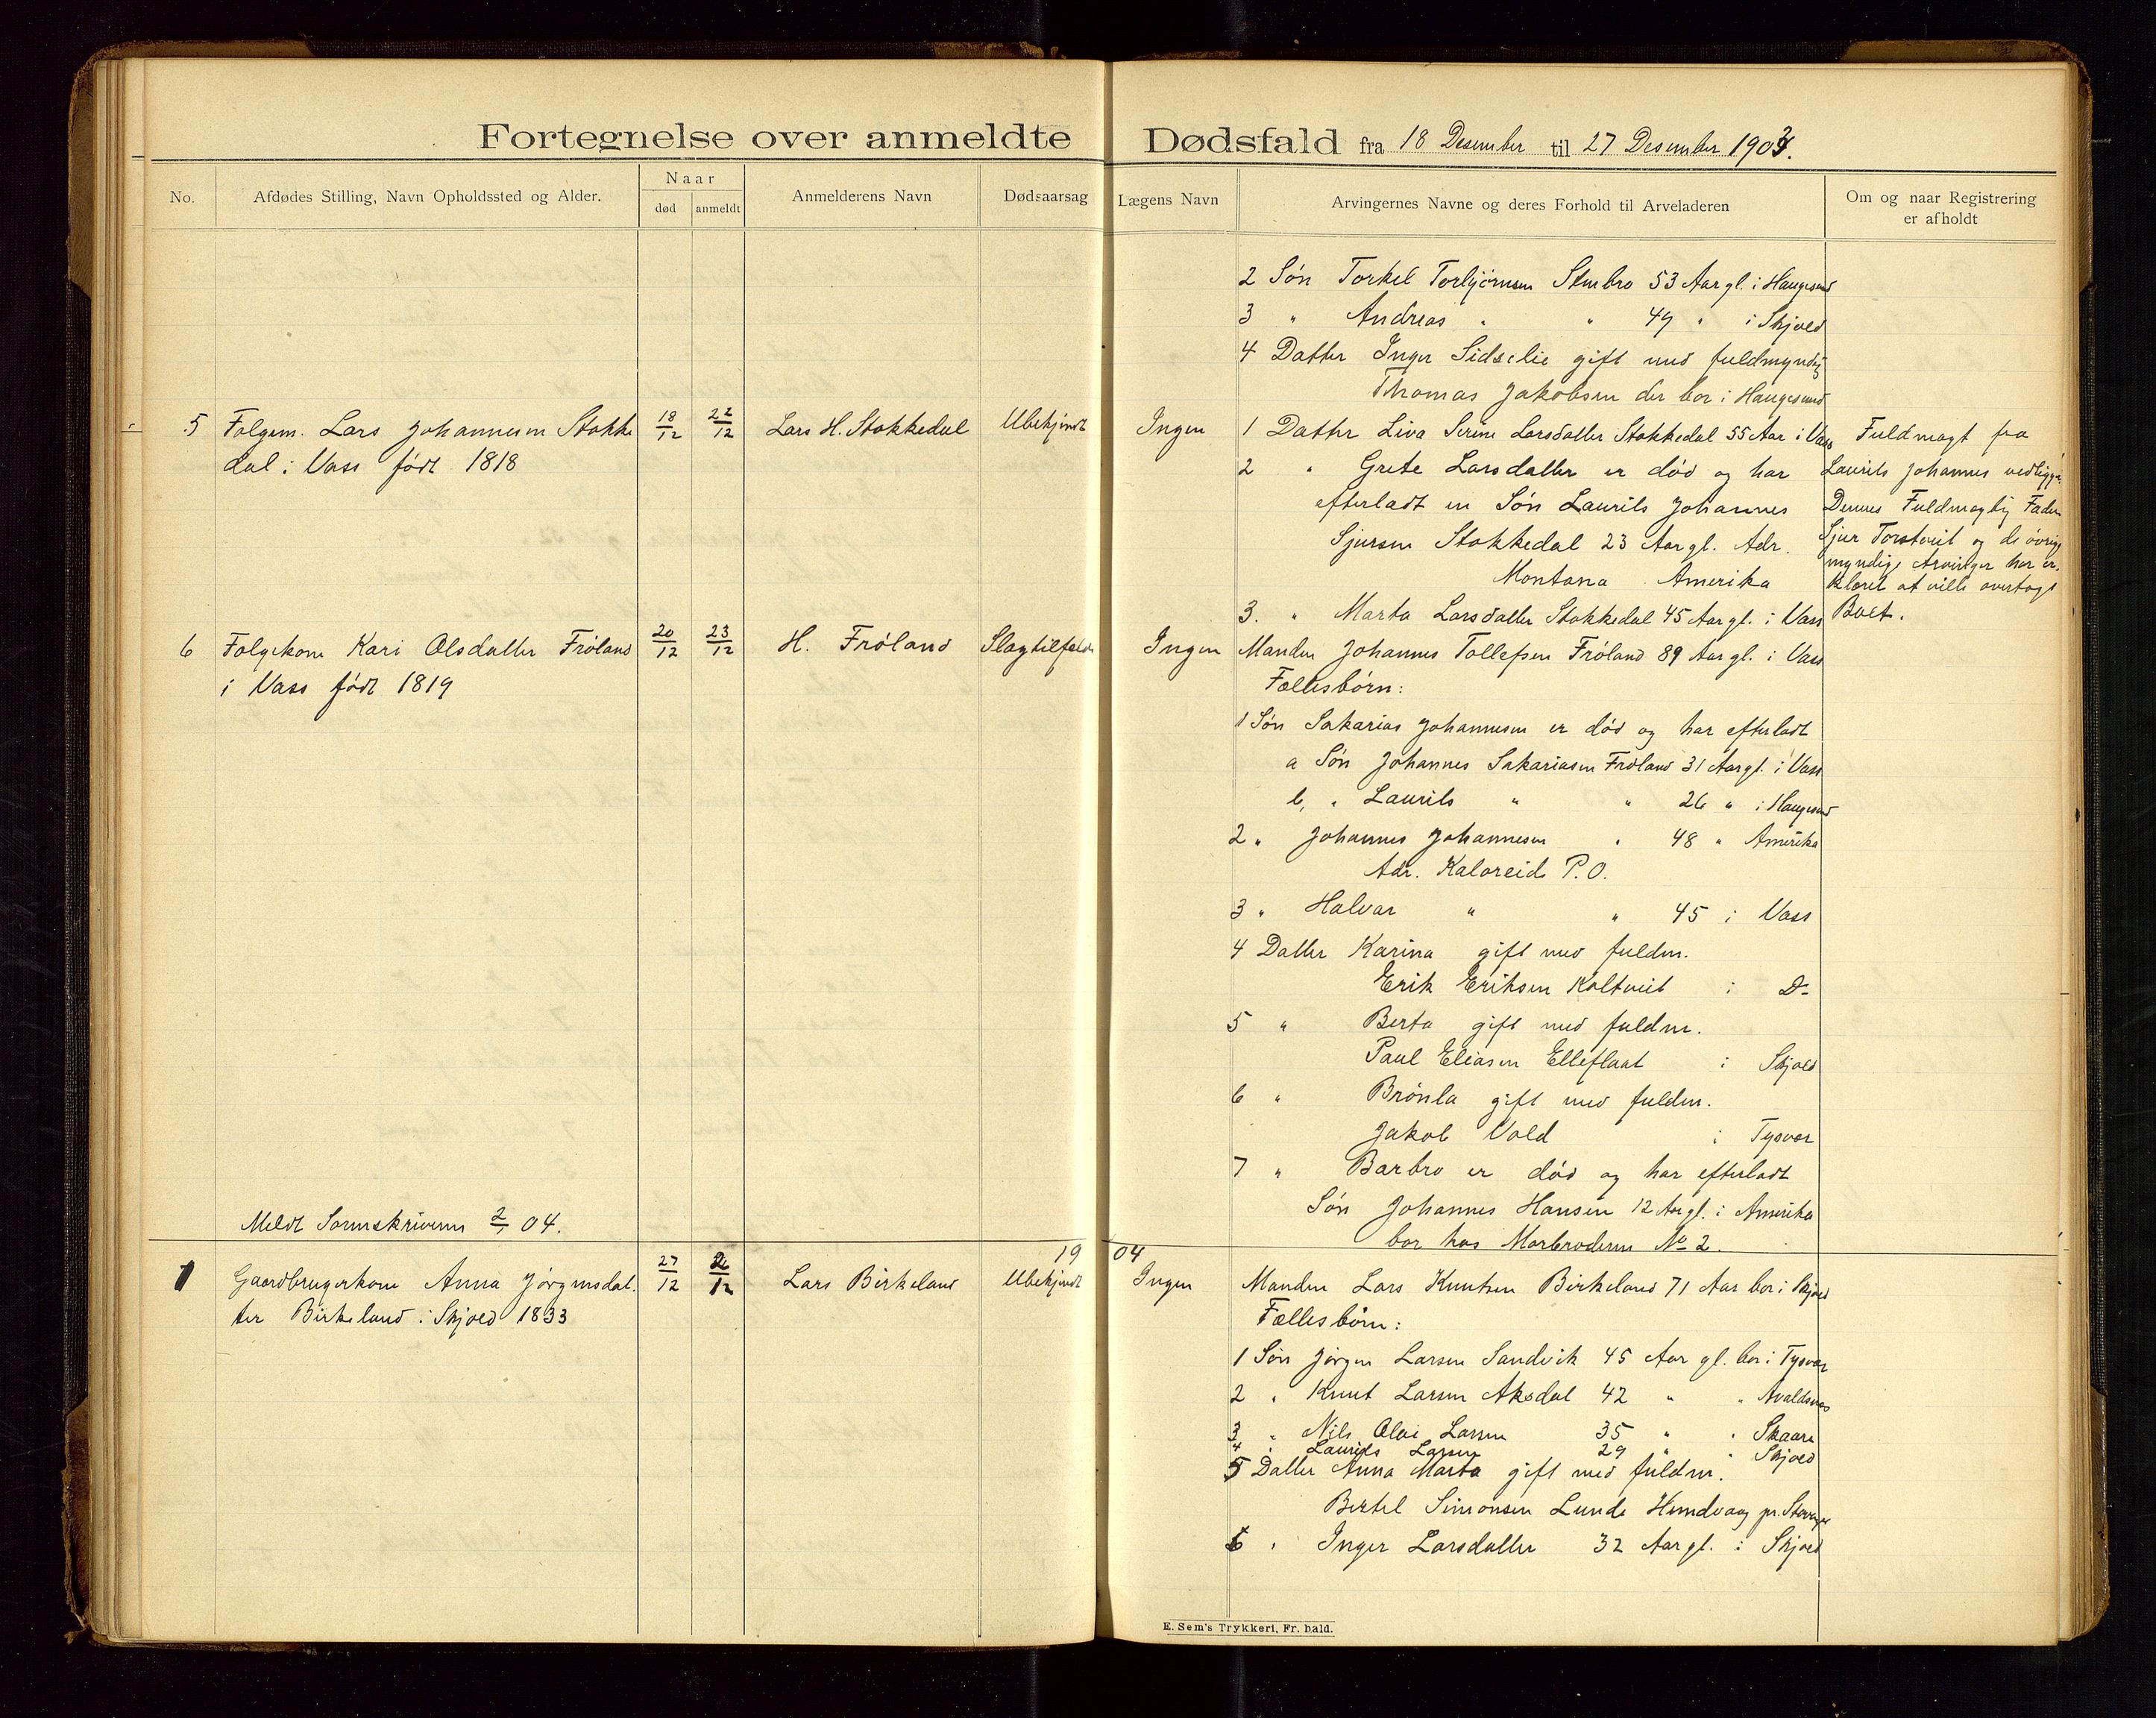 Fortegnelse over anmeldte Dødsfald fra 18 Desember til 27 Desember 1903.
No.
Afdødes Stilling, Navn Opholdssted og Alder.
Naar
død
anmeldt
Anmelderens Navn
Dødsaarsag
Lægens Navn
Arvingernes Navne og deres Forhold til Arveladeren
Om og naar Registrering
er afholdt
2 Søn Torkel Torbjørnsen Stenbro 53 Aar gl. i Haugesund
3 " Andreas " " 49 " i Skjold
4 Datter Inger Sidselie gift med fuldmyndig
Thomas Jakobsen der bor i Haugesund
5 Folgem. Lars Johannesen Stokke 18/12 22/12 Lars H. Stokkedal Ubekjendt Ingen 1 Datter Liva Serine Larsdatter Stokkedal 55 Aar i Vass
dal i Vass født 1818
2 " Grete Larsdatter er død og har
efterladt en Søn Laurits Johannes
Sjursen Stokkedal 23 Aar gl. Adr.
Montana Amerika
3. " Marta Larsdatter Stokkedal 45 Aar gl. i Vass
Fuldmagt fra
Laurits Johannes vedligger
Dennes Fuldmægtig Faderen
Sjur Torstveit og de øvrige
myndige Arvinger har er-
klæret at ville overtage
Boet.
6 Folgekone Kari Olsdatter Frøland 20/12 23/12 H. Frøland Slagtilfælde Ingen Manden Johannes Tollefsen Frøland 89 Aar gl. i Vass
i Vass født 1819
Fællesbørn:
1 Søn Sakarias Johannesen er død og har efterladt
a Søn Johannes Sakariasen Frøland 31 Aar gl. i Vass
b, " Laurits " " 26 " i Haugesund
2 " Johannes Johannesen " 48 " Amerika
Adr. Kaloreids P.O.
3 " Halvar " " 45 i Vass
4 Datter Karina gift med fuldm.
Erik Eriksen Koltveit i Do
5 " Berta gift med fuldm.
Paul Eliasen Elleflaat i Skjold
6 " Brønla gift med fuldm.
Jakob Vold i Tysvær
7 " Barbro er død og har efterladt
Søn Johannes Hansen 12 Aar gl. i Amerika
bor hos Morbroderen No 2.
Meldt Sorenskriveren 2/1 04.
1904
1 Gaardbrugerkone Anna Jørgensdat- 27/12 2/12 Lars Birkeland Ubekjendt Ingen Manden Lars Knutsen Birkeland 71 Aar bor i Skjold
ter Birkeland i Skjold 1833
Fællesbørn:
1 Søn Jørgen Larsen Sandvik 45 Aar gl. bor i Tysvær
2 " Knut Larsen Aksdal 42 " " Avaldsnes
3 " Nils Olai Larsen 35 " " Skaare
4 " Laurits Larsen 29 " " Skjold
5 Datter Anna Marta gift med fuldm.
Bertel Simonsen Lunde Hundvaag pr. Stavanger
6 " Inger Larsdatter 32 Aar gl. i Skjold
E. Sem's Trykkeri, Fr. hald.